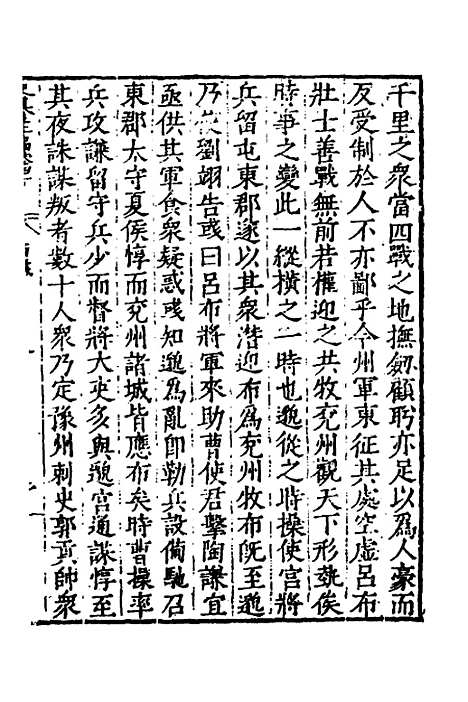 千里之衆當四戰之地撫劒顧眄亦足以爲人豪而
反受制於人不亦鄙乎今州軍東征其處空虛呂布
壯士善戰無前若權迎之共牧兖州觀天下形執俟
時事之變此一從橫之一時也邈從之時操使宮將
兵留屯東郡遂以其衆潛迎布爲兖州牧布旣至邈
乃使劉翊告彧曰呂布將軍來助曹使君擊陶謙宜
亟供其軍食衆疑惑彧知邈爲亂卽勒兵設備馳召
東郡太守夏侯惇而兖州諸城皆應布矣時曹操率
兵攻謙留守兵少而督將大吏多與邈宮通謀惇至
其夜誅謀叛者數十人衆乃定豫州刺史郭貢帥衆